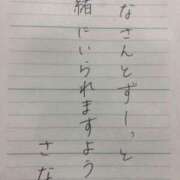 なさんとずーっと
緒にいられますよう
さな